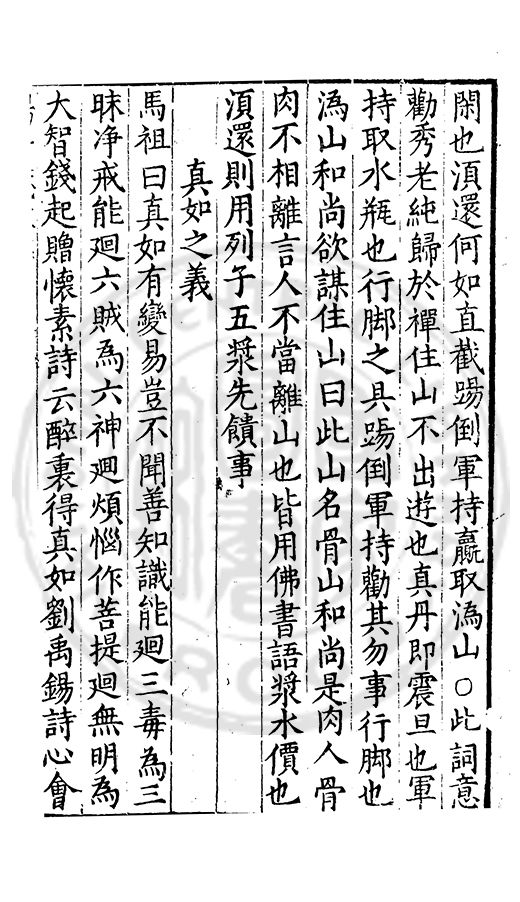 閑也湏還何如直截踢倒軍持贏取潙山○此詞意
勸秀老純歸於禪住山不出遊也真丹即震旦也軍
持取水瓶也行脚之具踢倒軍持勸其勿事行脚也
潙山和尚欲謀住山曰此山名骨山和尚是肉人骨
肉不相離言人不當離山也皆用佛書語漿水價也
湏還則用列子五漿先饋事
真如之義
馬祖曰真如有變易豈不聞善知識能廻三毒為三
昧净戒能廻六賊為六神廻煩惱作菩提廻無明為
大智錢起贈懷素詩云醉裏得真如劉禹錫詩心會